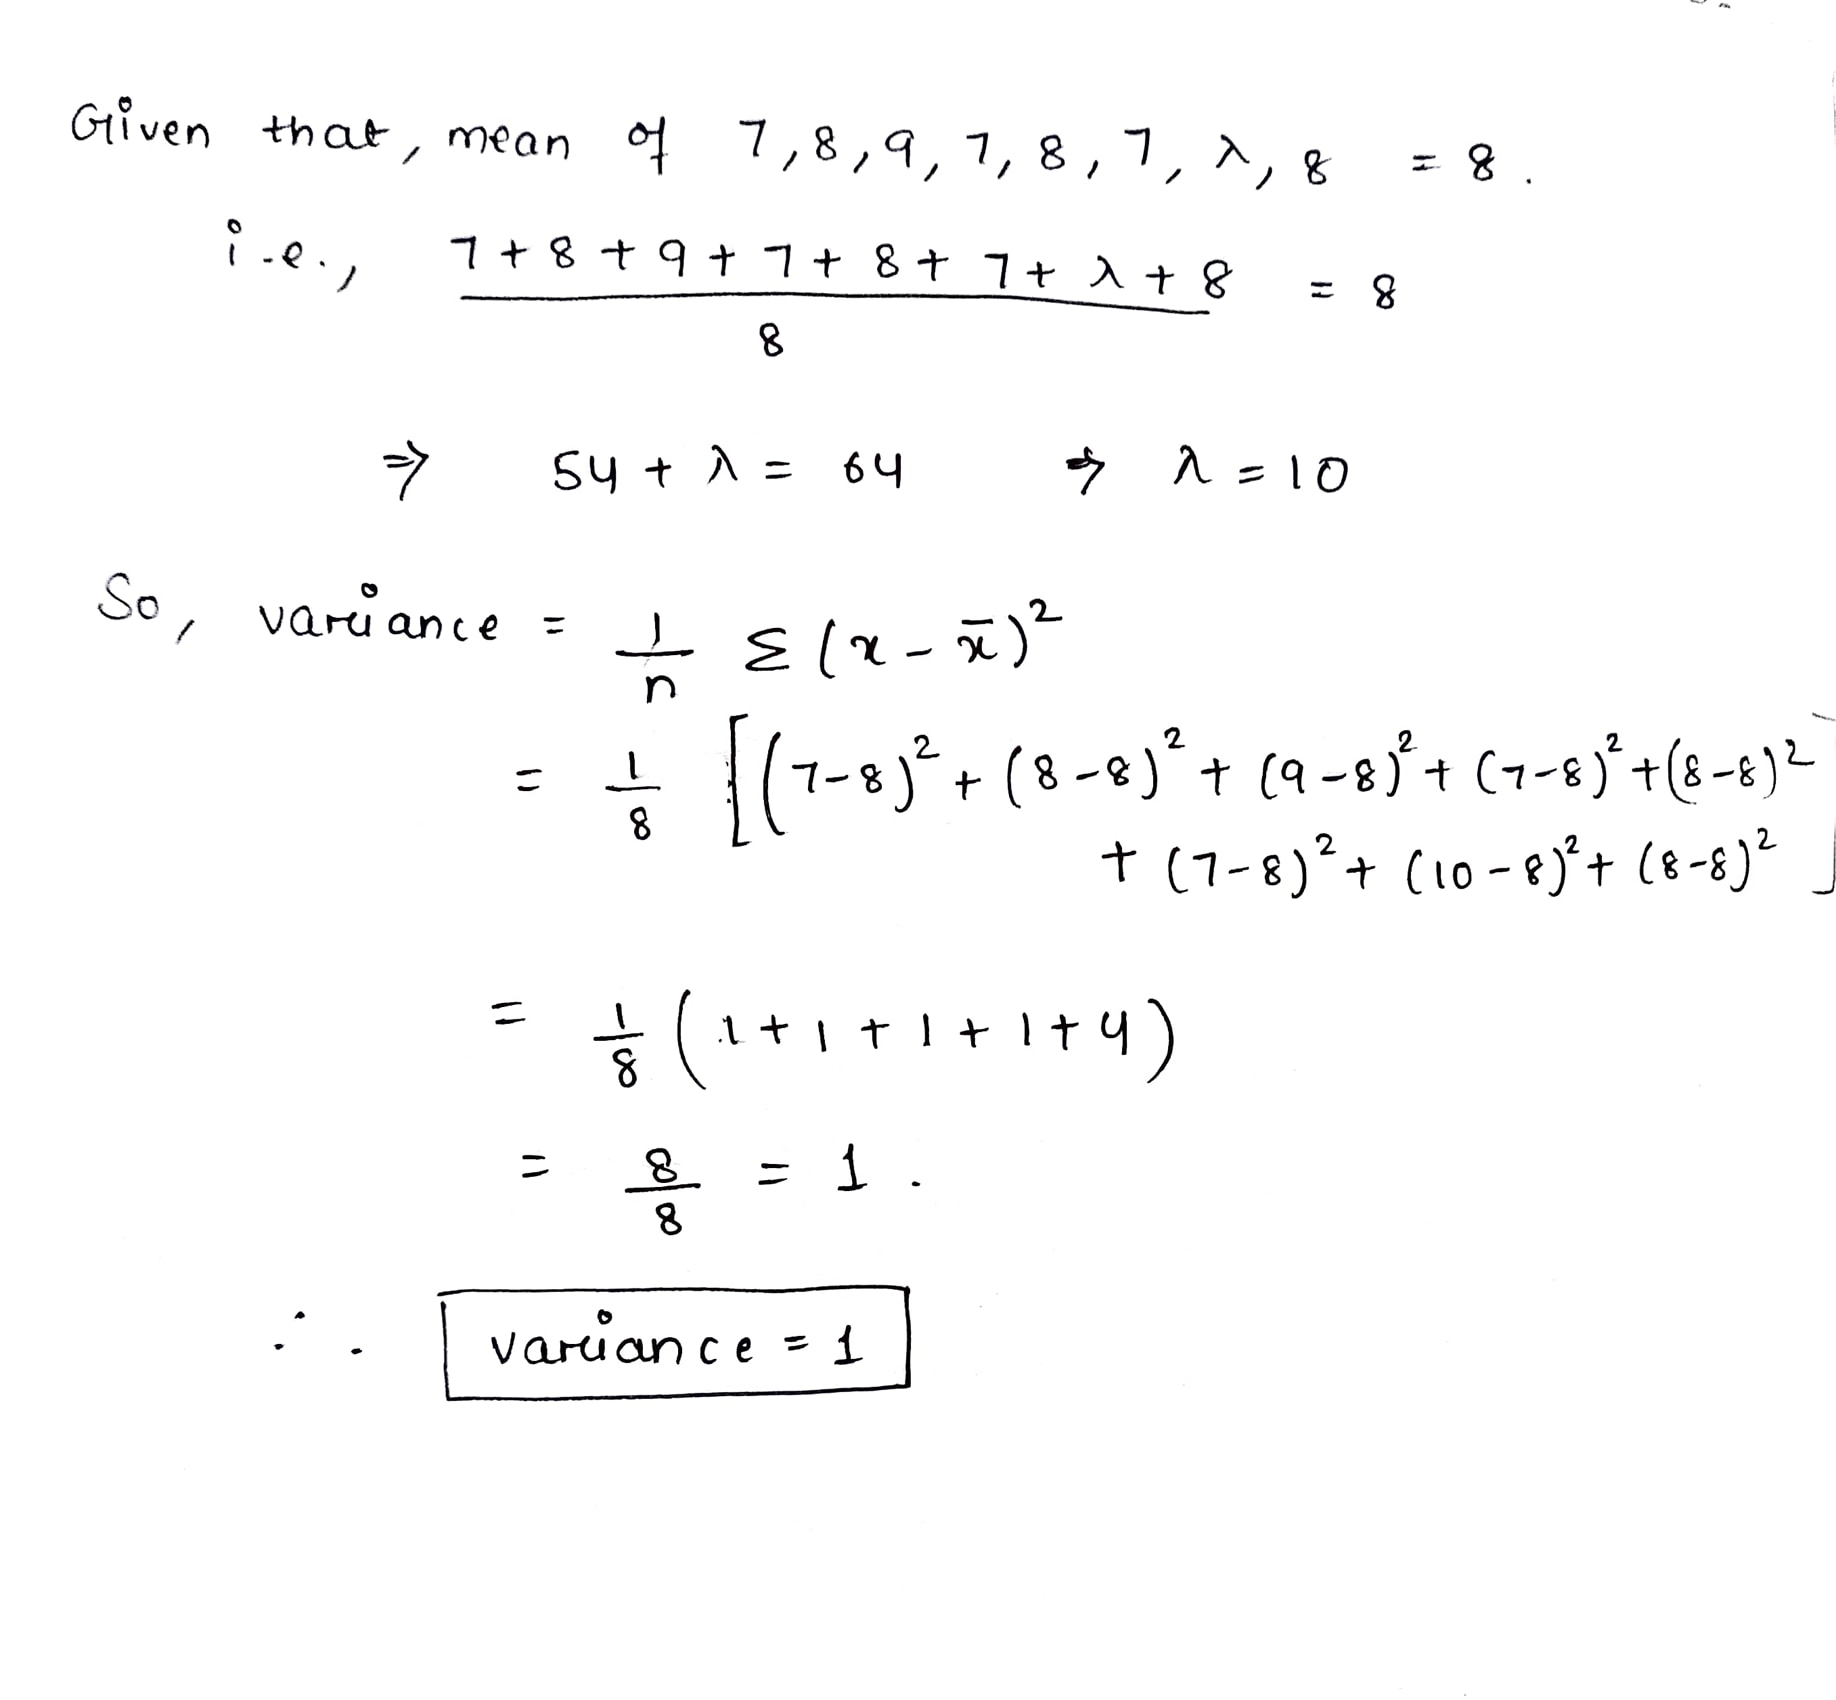 Given that, mean of 7, 8, 9, 7, 8, 7, λ, 8 = 8.
i.e., (7 + 8 + 9 + 7 + 8 + 7 + λ + 8) / 8 = 8
⇒ 54 + λ = 64 ⇒ λ = 10
So, variance = 1/n Σ (x - x̄)²
= 1/8 [(7-8)² + (8-8)² + (9-8)² + (7-8)² + (8-8)²
+ (7-8)² + (10-8)² + (8-8)²]
= 1/8 (1 + 1 + 1 + 1 + 4)
= 8/8 = 1.
∴ variance = 1